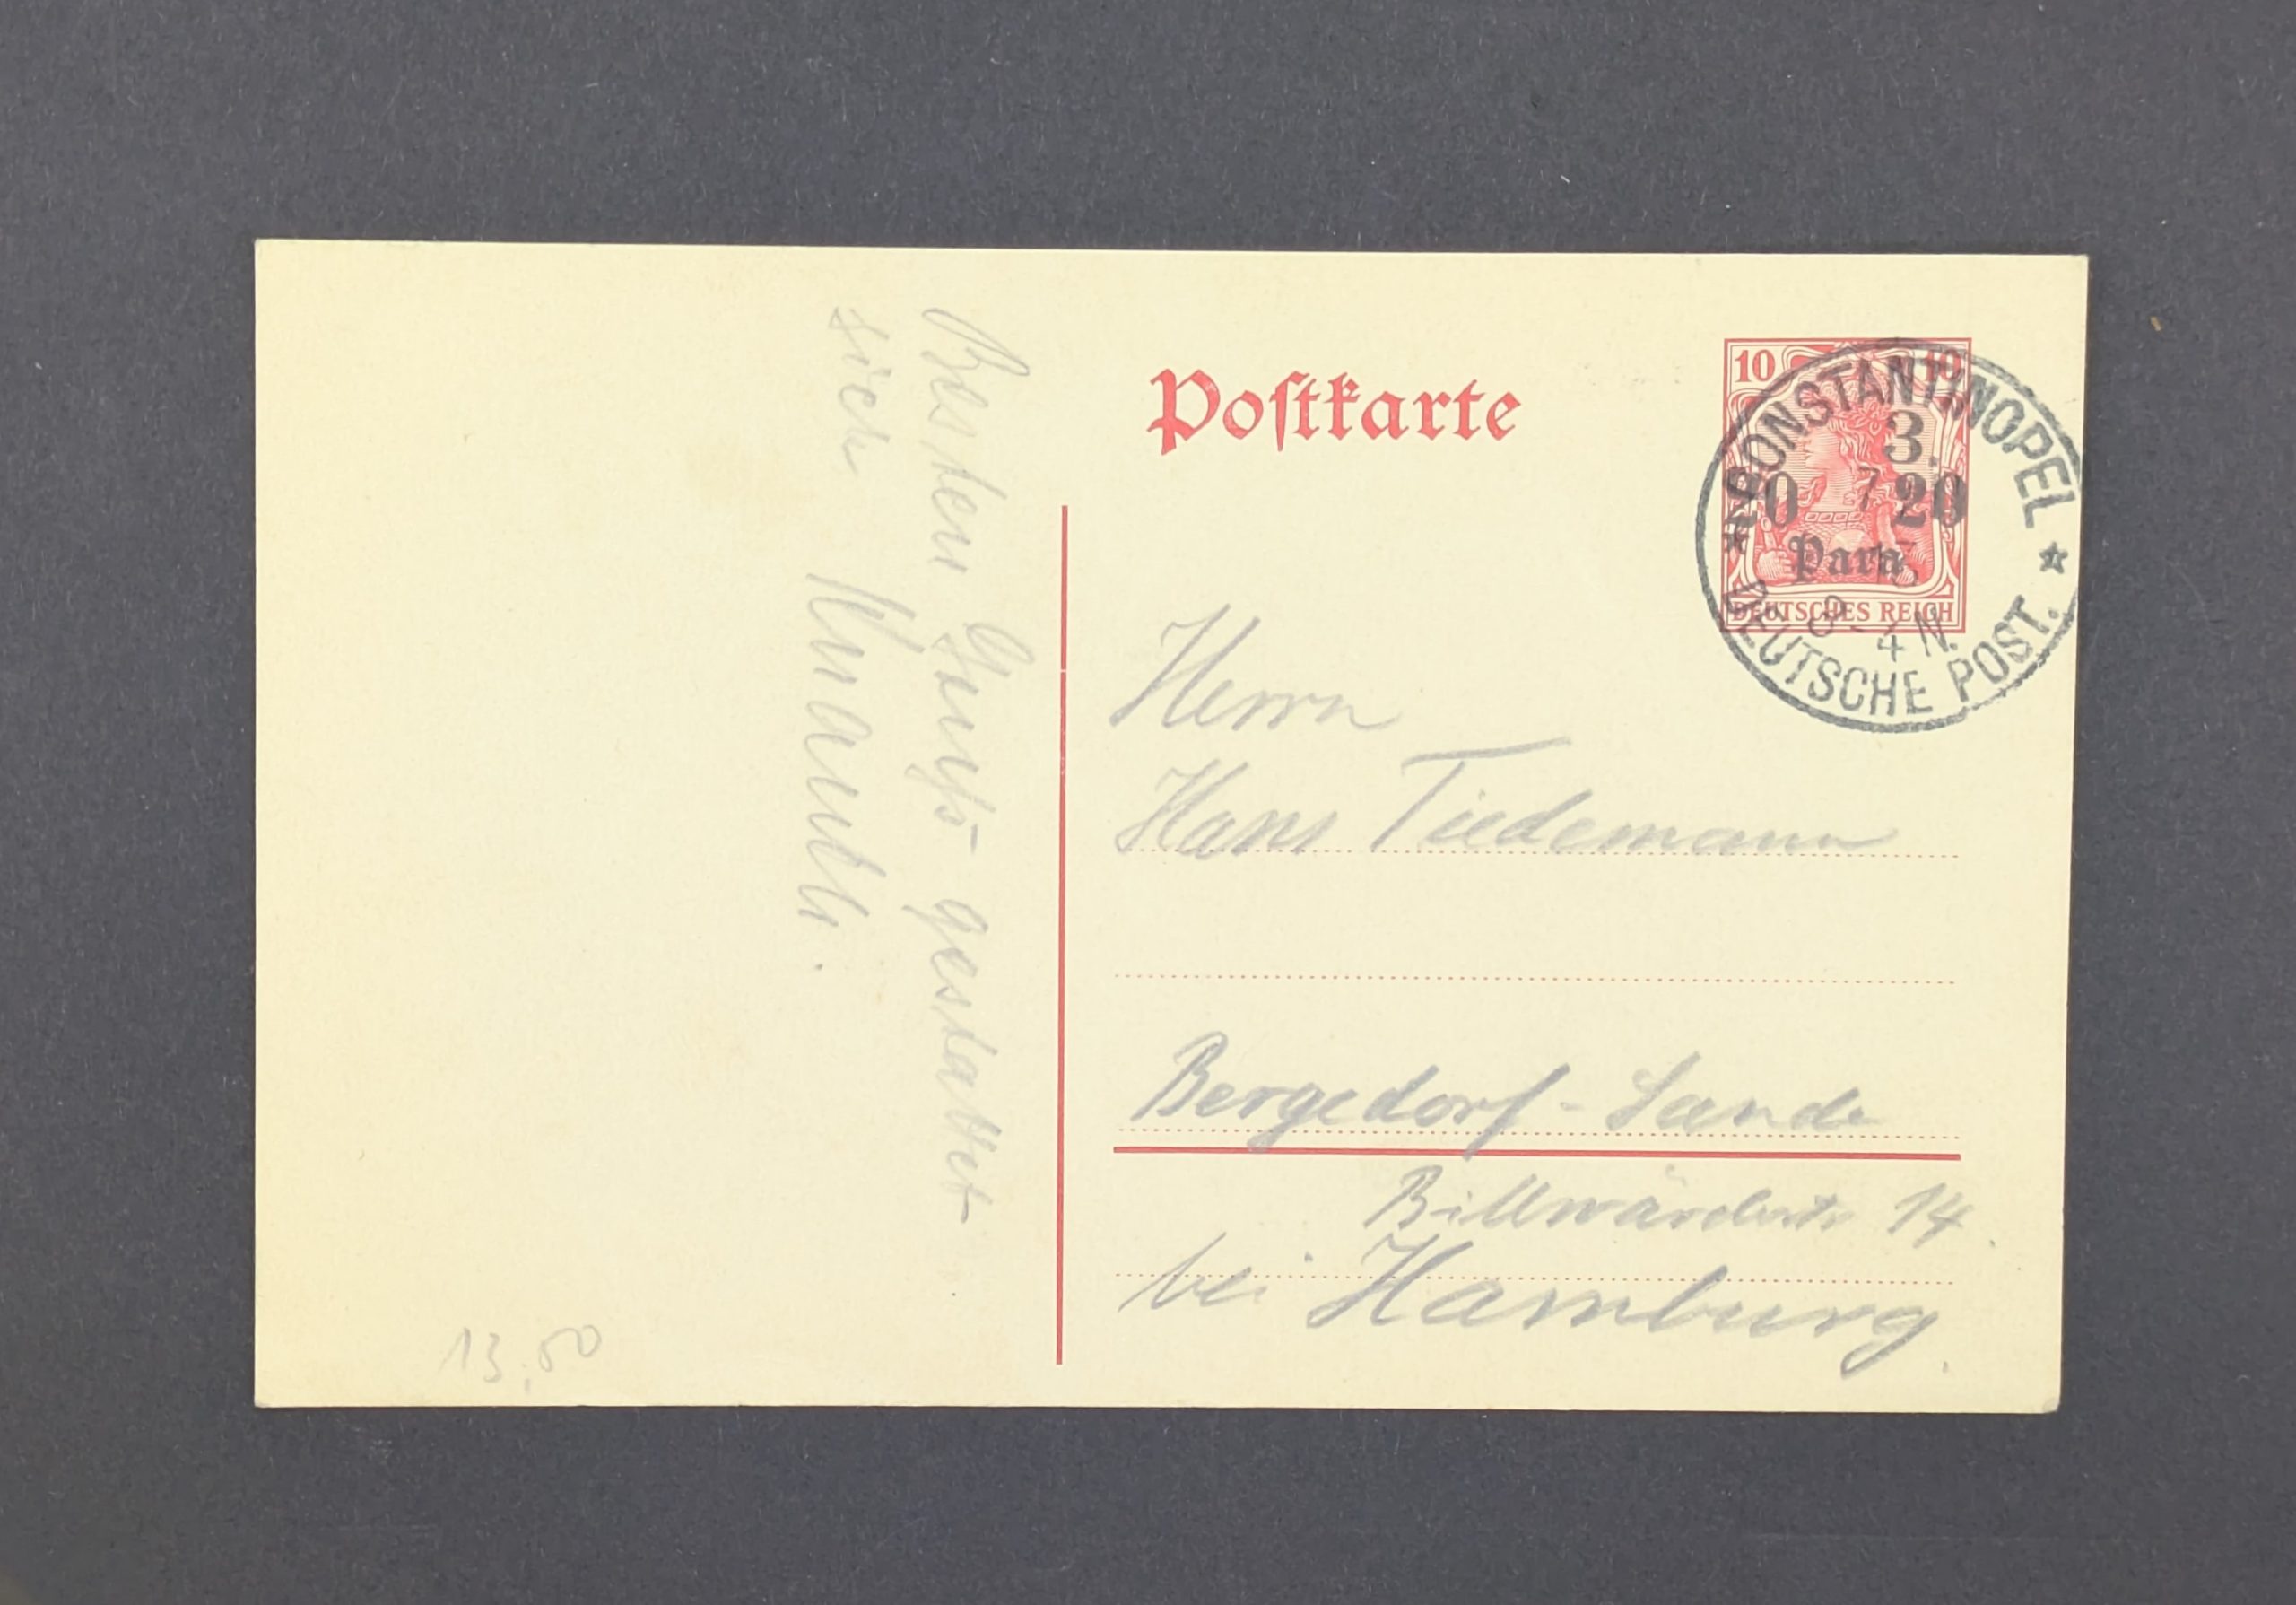 Besten Gruß gestattet
sich
13,50
Postkarte
10 10
20 20
Para
DEUTSCHES REICH
CONSTANTINOPEL
3.
7
3-4 N.
DEUTSCHE POST.
Herrn
Hans Tiedemann
Bergedorf-Sande
Billwärderstr 14
bei Hamburg